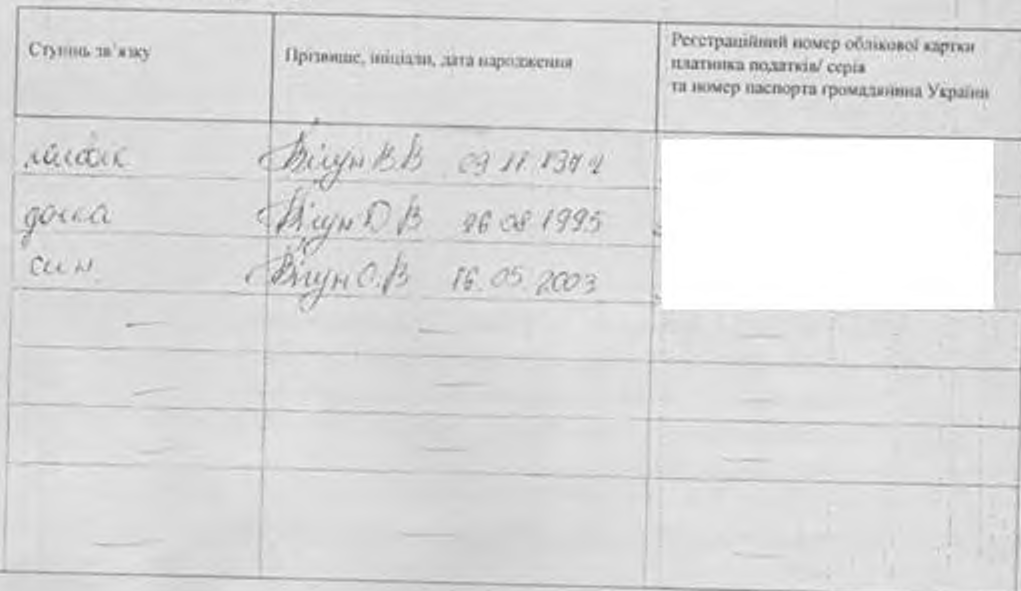 Ступінь зв'язку
Прізвище, ініціали, дата народження
Реєстраційний номер облікової картки
платника податків/ серія
та номер паспорта громадянина України
Вігун В.В 09 11
дочка Вігун О В 26 08 1995
син Вігун С.В 16.05.2003
— — —
— — —
— — —
— — —